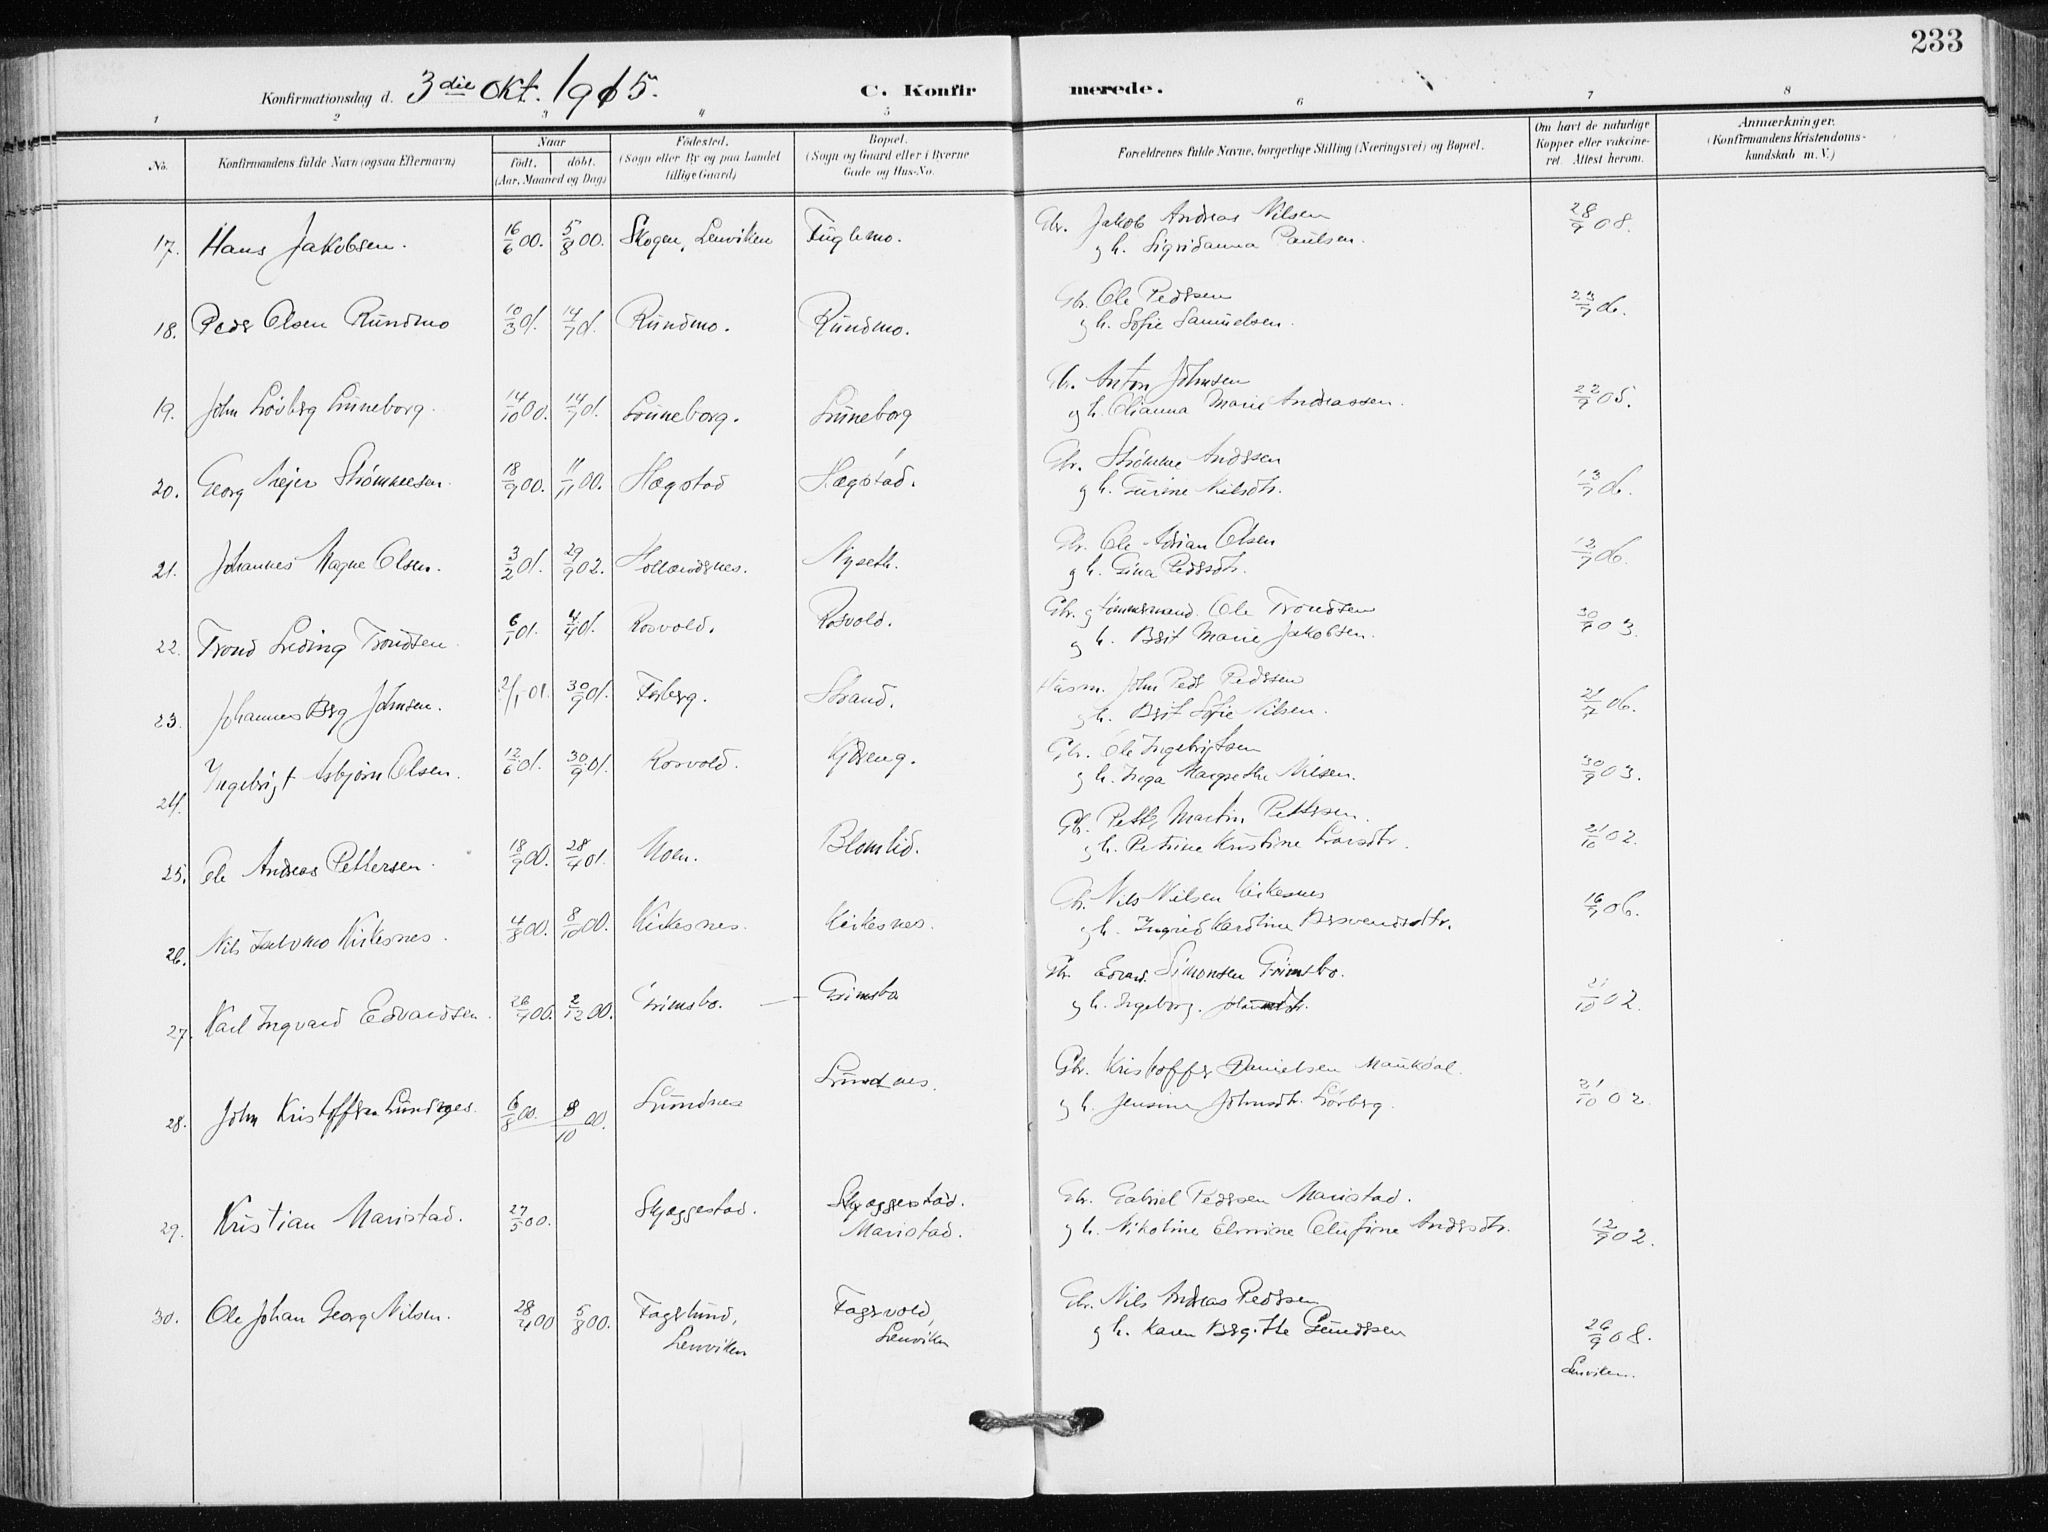 233
Konfirmationsdag d. 3die Okt. 1915. C. Konfirmerede.
1 2 3 4 5 6 7 8
No. Konfirmandens fulde Navn (ogsaa Efternavn) Naar født. døbt. (Aar, Maaned og Dag) Fødested. (Sogn eller By og paa Landet tillige Gaard) Bopæl. (Sogn og Gaard eller i Byerne Gade og Hus-No. Forældrenes fulde Navne, borgerlige Stilling (Næringsvei) og Bopæl. Om havt de naturlige Kopper eller vakcineret. Attest herom. Anmærkninger. (Konfirmandens Kristendomskundskab m. V.)
17. Hans Jakobsen. 16/6 00. 5/8 00. Skogen, Lenviken Fuglmo. Gbr. Jakob Andreas Nilsen 28/9 08.
g h. Sigridanna Paulsen.
18. Peder Olsen Rundmo 10/3 01. 14/7 01. Rundmo. Rundmo. Gbr. Ole Pedersen 23/7 06.
g h. Sofie Samuelsen.
19. John Løvberg Lunneborg. 14/10 00. 14/7 01. Lunneborg. Lunneborg Gbr. Anton Johnsen 22/9 05.
g h. Olianna Marie Andreassen.
20. Georg Mejer Strømmesen. 18/9 00. 11/11 00. Hægstad Hægstad. Gbr. Strømme Andersen 13/7 06.
g h. Gurine Nilsdtr.
21. Johannes Magne Olsen. 3/2 01. 29/9 02. Hollendernes. Nyseth. Gbr. Ole Adrian Olsen 12/7 06.
g h. Gina Pedersdtr.
22. Trond Leding Trondsen. 6/1 01. 4/4 01. Rosvold. Rosvold. Gbr. g tømmermand. Ole Trondsen 30/9 03.
g h. Berit Marie Jakobsen.
23. Johannes Berg Johnsen. 2/1 01. 30/9 01. Forberg. Strand. Husm. John Peder Pedersen 21/7 06.
g h. Berit Sofie Nilsen.
24. Ingebrigt Asbjørn Olsen. 12/6 01. 30/9 01. Rosvold. Gbr. Ole Ingebrigtsen 30/9 03.
g h. Inga Margrethe Nilsen.
25. Ole Andreas Pettersen. 18/9 00. 28/4 01. Moen. Blomlid. Gbr. Petter Martin Pettersen. 21/10 02.
g h. Petrine Kristine Larsdtr.
26. Nils Kirkesnes. 4/8 00. 8/10 00. Kirkesnes. Kirkesnes. Gbr. Nils Nilsen Kirkesnes 16/7 06.
g h. Ingrid Karoline Bersvendsdtr.
27. Karl Ingvard Edvardsen. 26/4 00. 2/12 00. Grimsbo. — Grimsbo Gbr. Edvard Simonsen Grimsbo. 21/10 02.
g h. Ingeborg
28. John Kristoffersen Lundnes. 6/8 00. 8/10 00. Lundnes Lundnes. Gbr. Kristoffer Danielsen Maukdal. 21/10 02.
g h. Jensine Johnsdtr. Løvberg.
29. Kristian Maristad. 27/5 00. Skjæggestad. Skjæggestad. Gbr. Gabriel Pedersen Maristad.
Maristad. g h. Nikoline Elvine Olufine Andersdtr. 12/9 02.
30. Ole Johan Georg Nilsen. 28/4 00 5/8 00. Fagerlund, Fagervold, Gbr. Nils Andreas Pedersen
Lenviken Lenviken g h. Karen Bergitte Gundersen 26/9 08.
Lenviken.